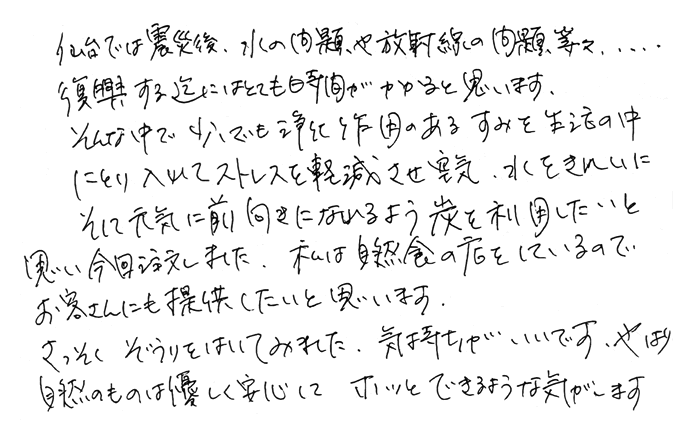 仙台では震災後、水の問題や放射線の問題等々、.....
復興する迄にはとても時間がかかると思います.
そんな中で少しでも浄化作用のあるすみを生活の中
にとり入れてストレスを軽減させ空気、水をきれいに
そして元気に前向きになれるよう炭を利用したいと
思い今回注文しました. 私は自然食の店をしているので
お客さんにも提供したいと思います.
さっそくぞうりをはいてみました. 気持ちがいいです、やはり
自然のものは優しく安心してホッとできるような気がします